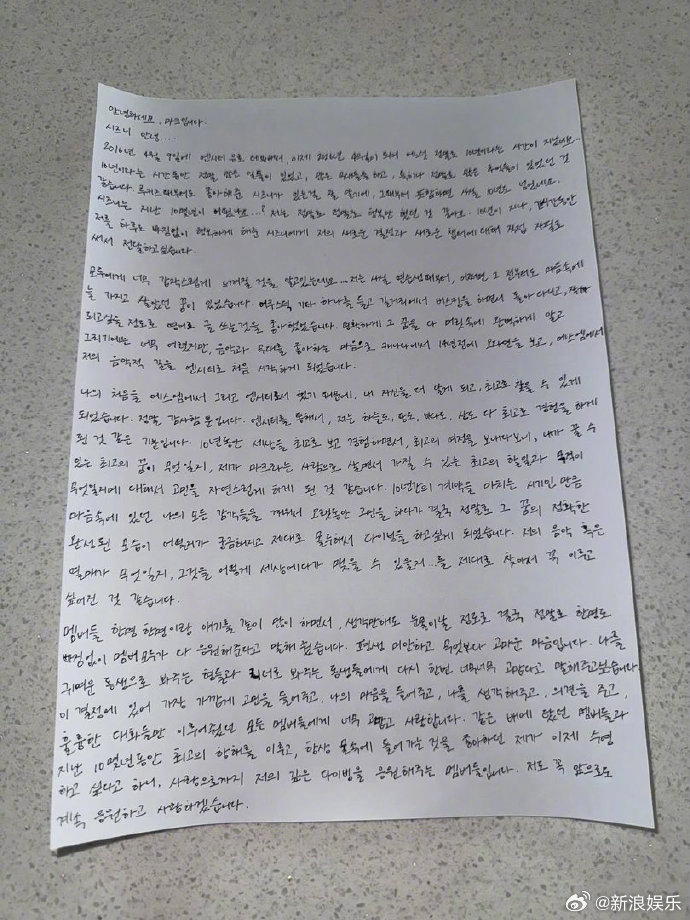 안녕하세요, 마크입니다.
시즈니 안녕...
2016년 4월 9일에 엔시티 유로 데뷔해서 이제 2026년 4월이 되어 어느덧 정말로 10년이라는 시간이 지났네요...
10년이라는 시간동안 정말 많은 일들이 있었고, 많은 무대들을 하고, 특히나 정말로 많은 추억들이 있었던 것
같습니다. 루키즈 때부터도 좋아해준 시즈니가 있는걸 잘 알기에, 그때부터 포함하면 사실 10년도 넘었네요.
시즈니는 지난 10몇년이 어땠나요...? 저는 정말로 정말로 행복만 했던 것 같아요. 10년이 지나, 긴 시간동안
저를 하루도 빠짐없이 행복하게 해준 시즈니에게 저의 새로운 결정과 새로운 챕터에 대해 직접 자필로
써서 전달하고싶습니다.
모두에게 너무 갑작스럽게 느껴질 것을 알고있는데요... 저는 사실 연습생때부터, 어쩌면 그 전부터도 마음속에
늘 가지고 살았던 꿈이 있었습니다. 어쿠스틱 기타 하나를 들고 길거리에서 버스킹을 하면서 돌아다니고, 작가가
되고싶을 정도로 영어로 글 쓰는것을 좋아했었습니다. 명확하게 그 꿈을 다 머릿속에 완벽하게 알고
그리기에는 너무 어렸지만, 음악과 무대를 좋아하는 마음으로 캐나다에서 14년전에 오디션을 보고, 에스엠에서
저의 음악적 길을 엔시티로 처음 시작하게 되었습니다.
나의 처음을 에스엠에서 그리고 엔시티로서 했기 때문에, 내 자신을 더 알게 되고, 최고로 살 수 있게
되었습니다. 정말 감사할 뿐입니다. 엔시티를 통해서, 저는 하늘도, 땅도, 바다도, 산도 다 최고로 경험을 하게
된 것 같은 기분입니다. 10년동안 세상을 최고로 보고 경험하면서, 최고의 여정을 보내다보니, 내가 꿀 수
있는 최고의 꿈이 무엇일지, 제가 마크라는 사람으로 살면서 가질 수 있는 최고의 할일과 목적이
무엇일지에 대해서 고민을 자연스럽게 하게 된 것 같습니다. 10년간의 계약을 마치는 시기인 만큼
마음속에 있던 나의 모든 감각들을 깨워서 오랫동안 고민을 하다가 결국 정말로 그 꿈의 정확한
완성된 모습이 어떨지가 궁금해지고 제대로 몰두해서 다이빙을 하고싶게 되었습니다. 저의 음악 혹은
열매가 무엇일지, 그것을 어떻게 세상에다가 맺을 수 있을지...를 제대로 찾아서 꼭 이루고
싶어진 것 같습니다.
멤버들 한명 한명이랑 얘기를 같이 많이 하면서, 생각만해도 눈물이날 정도로 결국 정말로 한명도
빠짐없이 멤버 모두가 다 응원해준다고 말해줬습니다. 평생 미안하고 무엇보다 고마운 마음입니다. 나를
귀여운 동생으로 봐주는 형들과 리더로 봐주는 동생들에게 다시 한번 너무너무 고맙다고 말해주고싶습니다
이 결정에 있어 가장 가깝게 고민을 들어주고, 나의 마음을 들어주고, 나를 생각해주고, 의견을 주고,
훌륭한 대화들만 이루어졌던 모든 멤버들에게 너무 고맙고 사랑합니다. 같은 배에 탔던 멤버들과
지난 10몇년동안 최고의 항해를 이루고, 항상 물속에 들어가는 것을 좋아하던 제가 이제 수영
하고 싶다고 하니, 사랑으로까지 저의 깊은 다이빙을 응원해주는 멤버들입니다. 저도 꼭 앞으로도
계속 응원하고 사랑하겠습니다.
@新浪娱乐